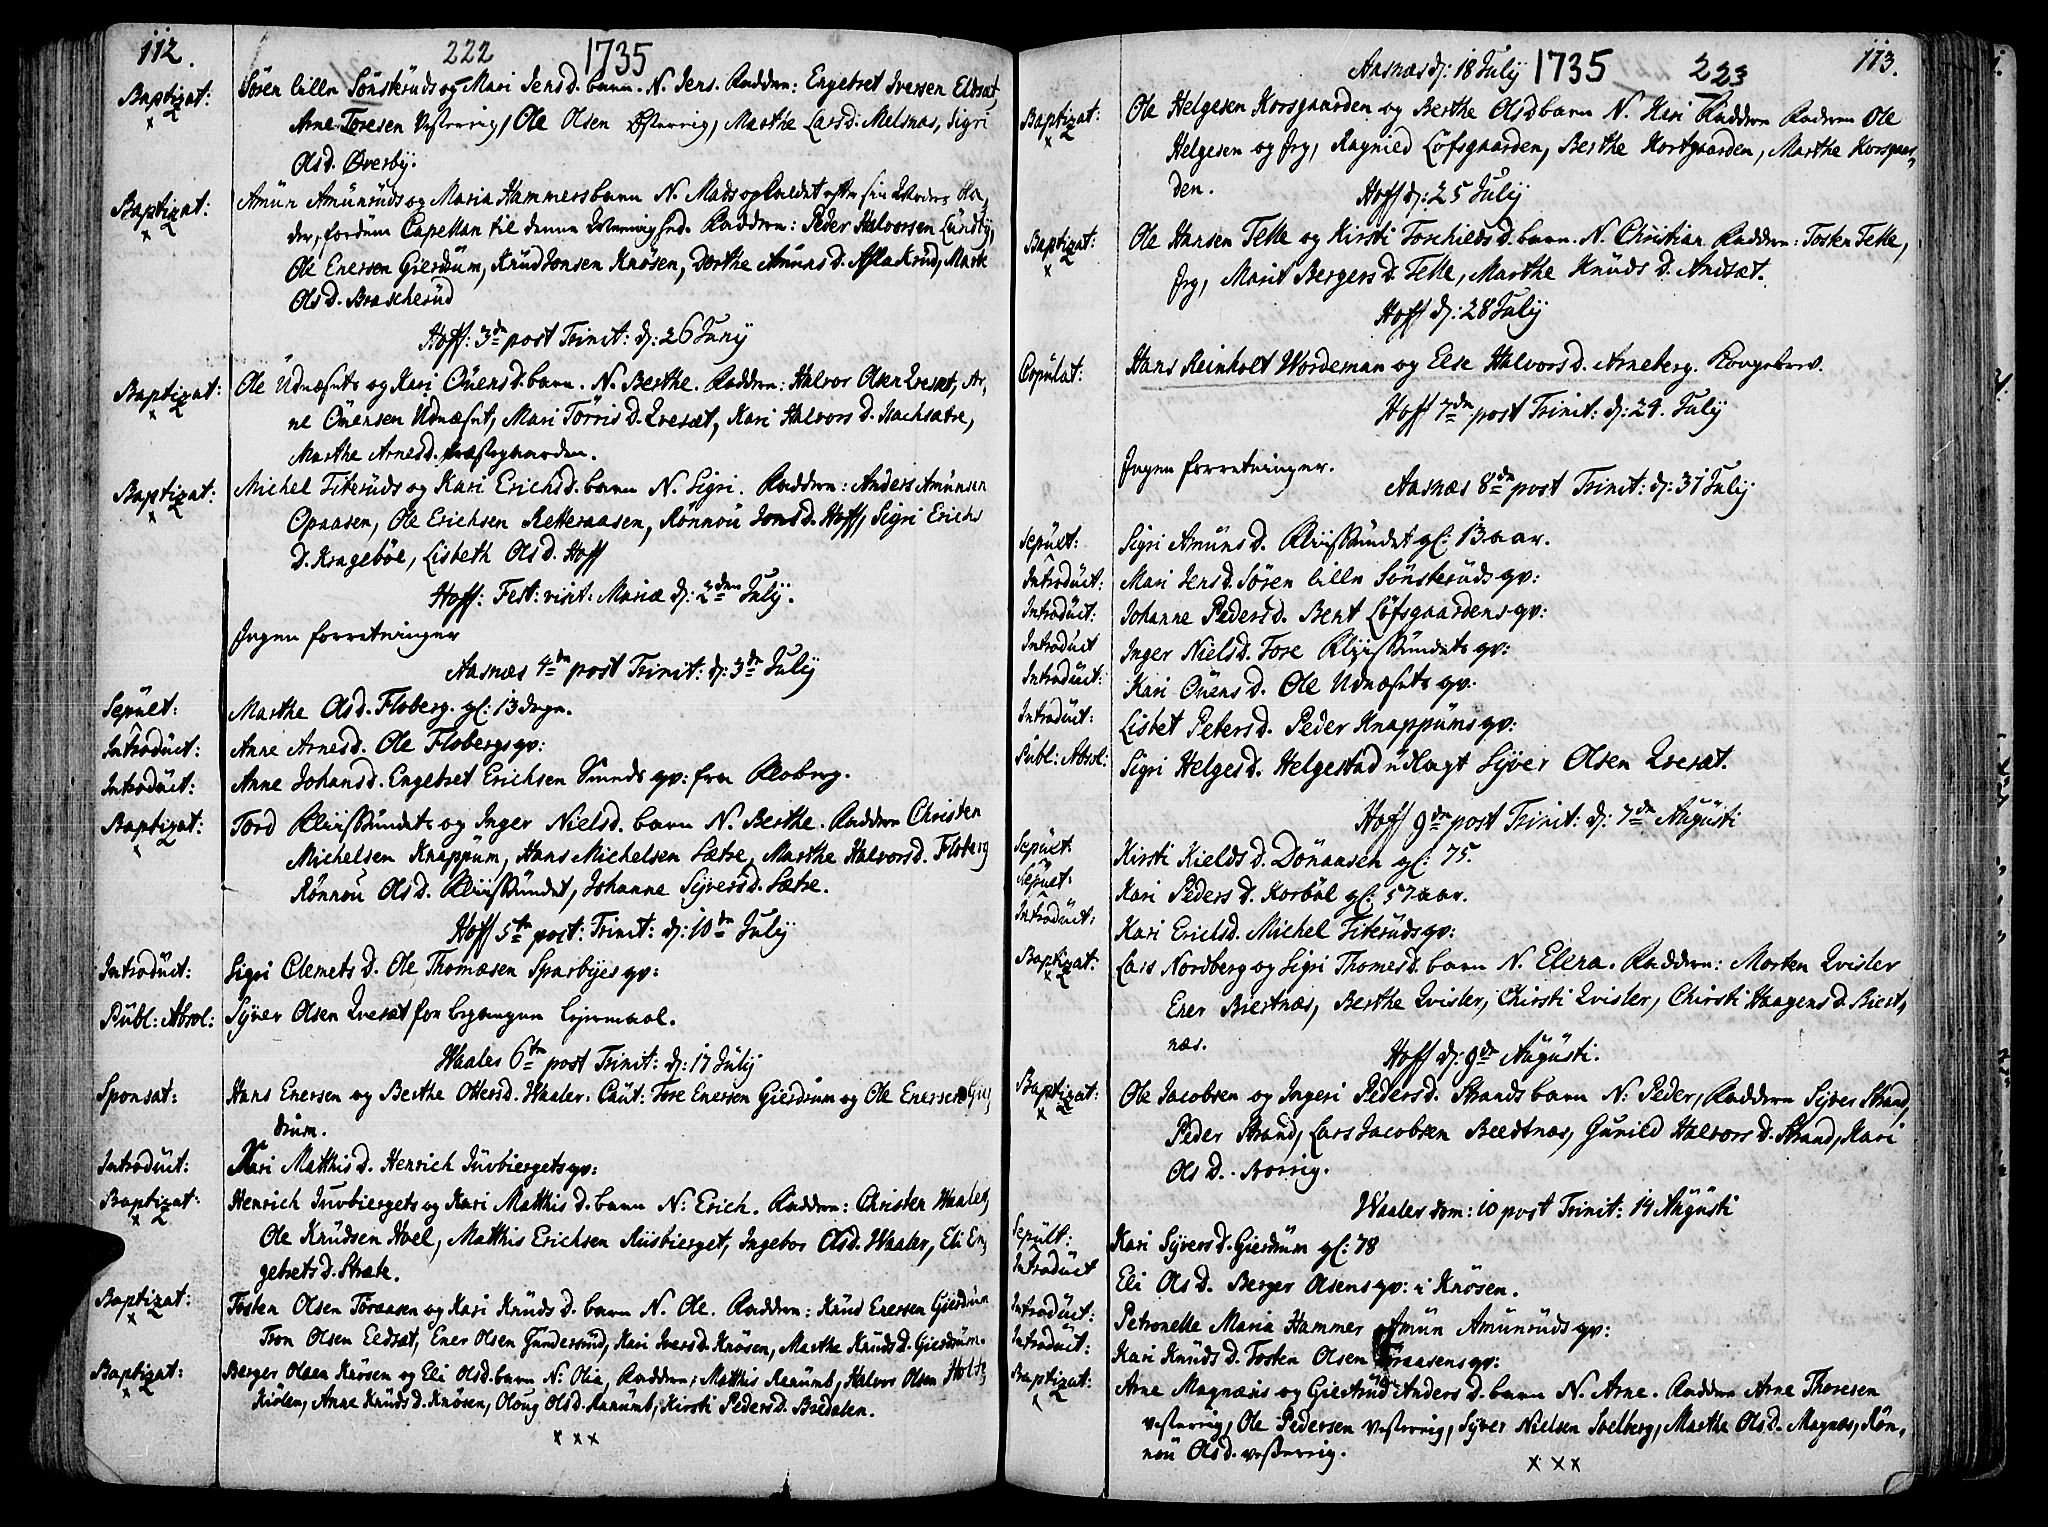 112.
222
1735
Baptizat:
Søren lille Sønsterüds og Mari Jens d. barn. N. Jens. Faddere: Engebret Iversen Eldsæt,
Arne Toresen Vestervig, Ole Olsen Østervig, Marthe Lars d. Melsnæs, Sigri
Ols d. Øverby.
Baptizat:
Amün Amünrüds og Maria Hammers barn N. Mads opkaldet efter sin Moders Fa,
der, fordüm Capellan til denne Menighed. Faddere: Peder Halvorsen Lündby,
Ole Enersen Gierdrüm, Knüd Jonsen Knøsen, Dorthe Amüns d. Aslakrud, Marte
Ols d. Brascherüd
Hoff: 3de post Trinit: d: 26 Junij
Baptizat:
Ole Udnæsets og Kari Oüens d. barn. N. Berthe. Faddere: Halvor Olsen Qvesæt, Ar,
ne Oüensen Udnæset, Mari Törris d. Qvesæt, Kari Halvors d. Hachsætre,
Marthe Arnes d. Præstegaarden.
Baptizat:
Michel Fiterüds og Kari Erichs d. barn N. Sigri. Faddere: Anders Amünsen
Opaasen, Ole Erichsen Retteraasen, Rønnoü Jons d. Hoff, Sigri Erichs
d. Kragebøl, Lisbeth Ols d. Hoff
Hoff: Fest: visit: Mariæ d: 2den Julij.
Ingen forretninger
Aasnæs 4de post Trinit: d: 3de Julij
Sepült:
Marthe Ols d. Floberg. gl: 13 dage.
Introdüct:
Anne Arnes d. Ole Flobergs qv:
Introdüct:
Anne Johans d. Engebret Erichsen Smeds qv: fra Floberg.
Baptizat:
Tord Kliisstündets og Inger Niels d. barn N. Berthe. Faddere Christen
Michelsen Knappüm, Hans Michelsen Sætre, Marthe Halvors d. Floberg
Rønnoü Ols d. Kliisstündet, Johanne Syvers d. Sætre.
Hoff 5te post: Trinit: d: 10de Julij
Introdüct:
Sigri Clemets d. Ole Thomæsen Sparbyes qv:
Publ: Absol:
Syver Olsen Qvesæt for begangen Lejermaal.
Waaler 6te post Trinit: d: 17 Julij
Sponsat:
Hans Enersen og Berthe Otters d. Waaler: Caüt: Tore Enersen Gierdrum og Ole Enersen Gier,
drum.
Introdüct:
Kari Matthis d. Henrich Jüvbiergets qv:
Baptizat:
Henrich Jüvbiergets og Kari Matthis d. barn N: Erich. Faddere: Christen Waaler,
Ole Knüdsen Hoel, Matthis Erichsen Riisbierget, Ingebor Ols d. Waaler, Eli En,
gebrets d. Stræte.
Baptizat:
Tosten Olsen Toraasen og Kari Knüds d. barn N. Ole. Faddere: Knüd Enersen Gierdrum
Tron Olsen Eedsæt, Ener Olsen Gündersrud, Kari Ivers d. Knøsen, Marthe Knüds d. Gierdrüm.
Baptizat:
Berger Olsen Knøsen og Eli Ols d. barn N: Olia, Faddere: Matthis Ranümb, Halvor Olsen Holte,
Kiølen, Anne Knüds d. Knøsen, Oloug Ols d. Ranümb, Kirsti Peders d. Bredalen.
x x x
Aasnæs d: 18 Julij
1735
223
113.
Baptizat:
Ole Helgesen Korsgaarden og Berthe Ols d barn N. Kari Faddere Ole
Helgesen og Jrg, Ragnied Løfsgaarden, Berthe Kortgaarden, Marthe Korsgaar,
den.
Hoff d: 25 Julij
Baptizat:
Ole Hansen Telle og Kirsti Torchields d. barn. N. Christian Faddere: Tosten Telle,
Jrg, Marit Bergers d. Telle, Marthe Knüds d. Andsæt.
Hoff d: 28 Julij
Copülat:
Hans Reinholt Wordeman og Else Halvors d. Arneberg. Kongebrev.
Hoff 7de post Trinit: d: 24. Julij
Ingen forretninger.
Aasnæs 8de post Trinit: d: 31 Julij
Sepült:
Sigri Amüns d. Kliisstündet gl: 13 aar.
Introdüct:
Mari Jens d. Søren lille Sønsterüds qv:
Introdüct:
Johanne Peders d. Bent Løfsgaardens qv:
Introdüct
Inger Niels d. Tore Kliisstündets qv:
Introdüct:
Kari Oüens d. Ole Udnæsets qv.
Introdüct:
Lisbet Peters d. Peder Knappüms qv:
PüBl: Absol:
Sigri Helges d. Helgestad üdlagt Syver Olsen Qvesæt.
Hoff 9de post Trinit: d: 7de Aügüsti
Sepült
Kirsti Kields d. Dönaasen gl: 75.
Sepült:
Kari Peders d. Korbøl gl: 57 aar.
Introdüct:
Kari Erichs d. Michel Fiterüds qv:
Baptizat.
Lars Nordberg og Sigri Thomes d. barn N. Elena. Faddere: Morten Qvisler
Ener Biertnæs, Berthe Qvisler, Chirsti Qvisler, Chirsti Haagens d. Biert,
næs.
Hoff d: 9de Aügüsti.
Baptizat:
Ole Jacobsen og Ingeri Peders d. Strands barn N: Peder, Faddere Syver Strand,
Peder Strand, Lars Jacobsen Beedtnæs, Gunild Halvors d. Strand, Kari
Ols d. Borrig.
Waaler dom: 10 post Trinit: 14 Aügüsti
Sepült:
Kari Syvers d. Gierdrüm gl: 78
Introdüct
Eli Ols d. Berger Olsens qv: i Knøsen.
Introdüct:
Petronelle Maria Hammer Amün Amünrüds qv:
Introdüct:
Kari Knüds d. Tosten Olsen Toraasens qv:
Baptizat:
Arne Magnæs og Giertrüd Anders d. barn N. Arne. Faddere Arne Thoresen
Vestervig, Ole Pedersen Vestervig, Syver Nielsen Soelberg, Marthe Ols d. Magnæs, Røn,
noü Ols d. Vestervig.
x x x